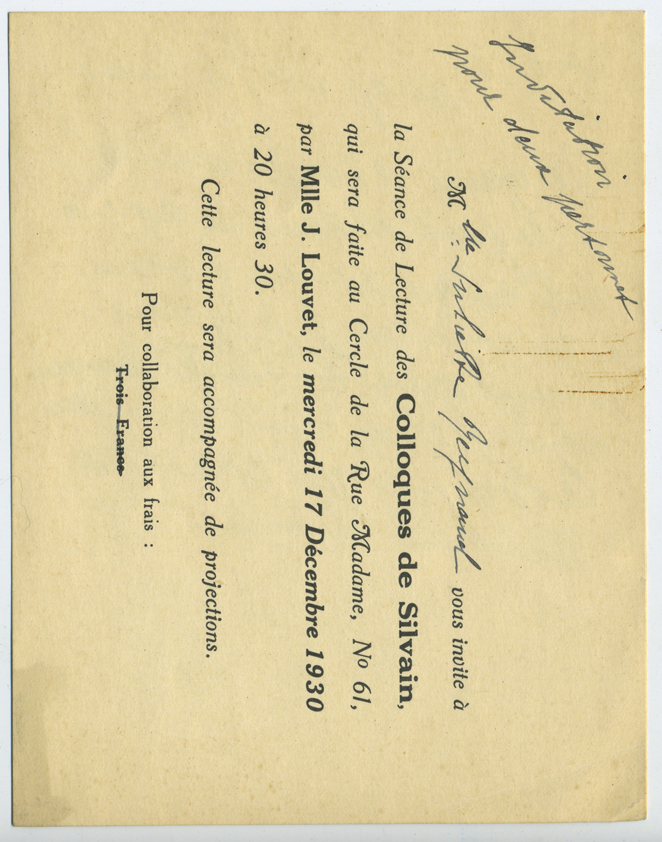 Invitation
pour deux personnes
Mlle Juliette Reynaud vous invite à
la Séance de Lecture des Colloques de Silvain,
qui sera faite au Cercle de la Rue Madame, No 61,
par Mlle J. Louvet, le mercredi 17 Décembre 1930
à 20 heures 30.
Cette lecture sera accompagnée de projections.
Pour collaboration aux frais :
Trois Francs